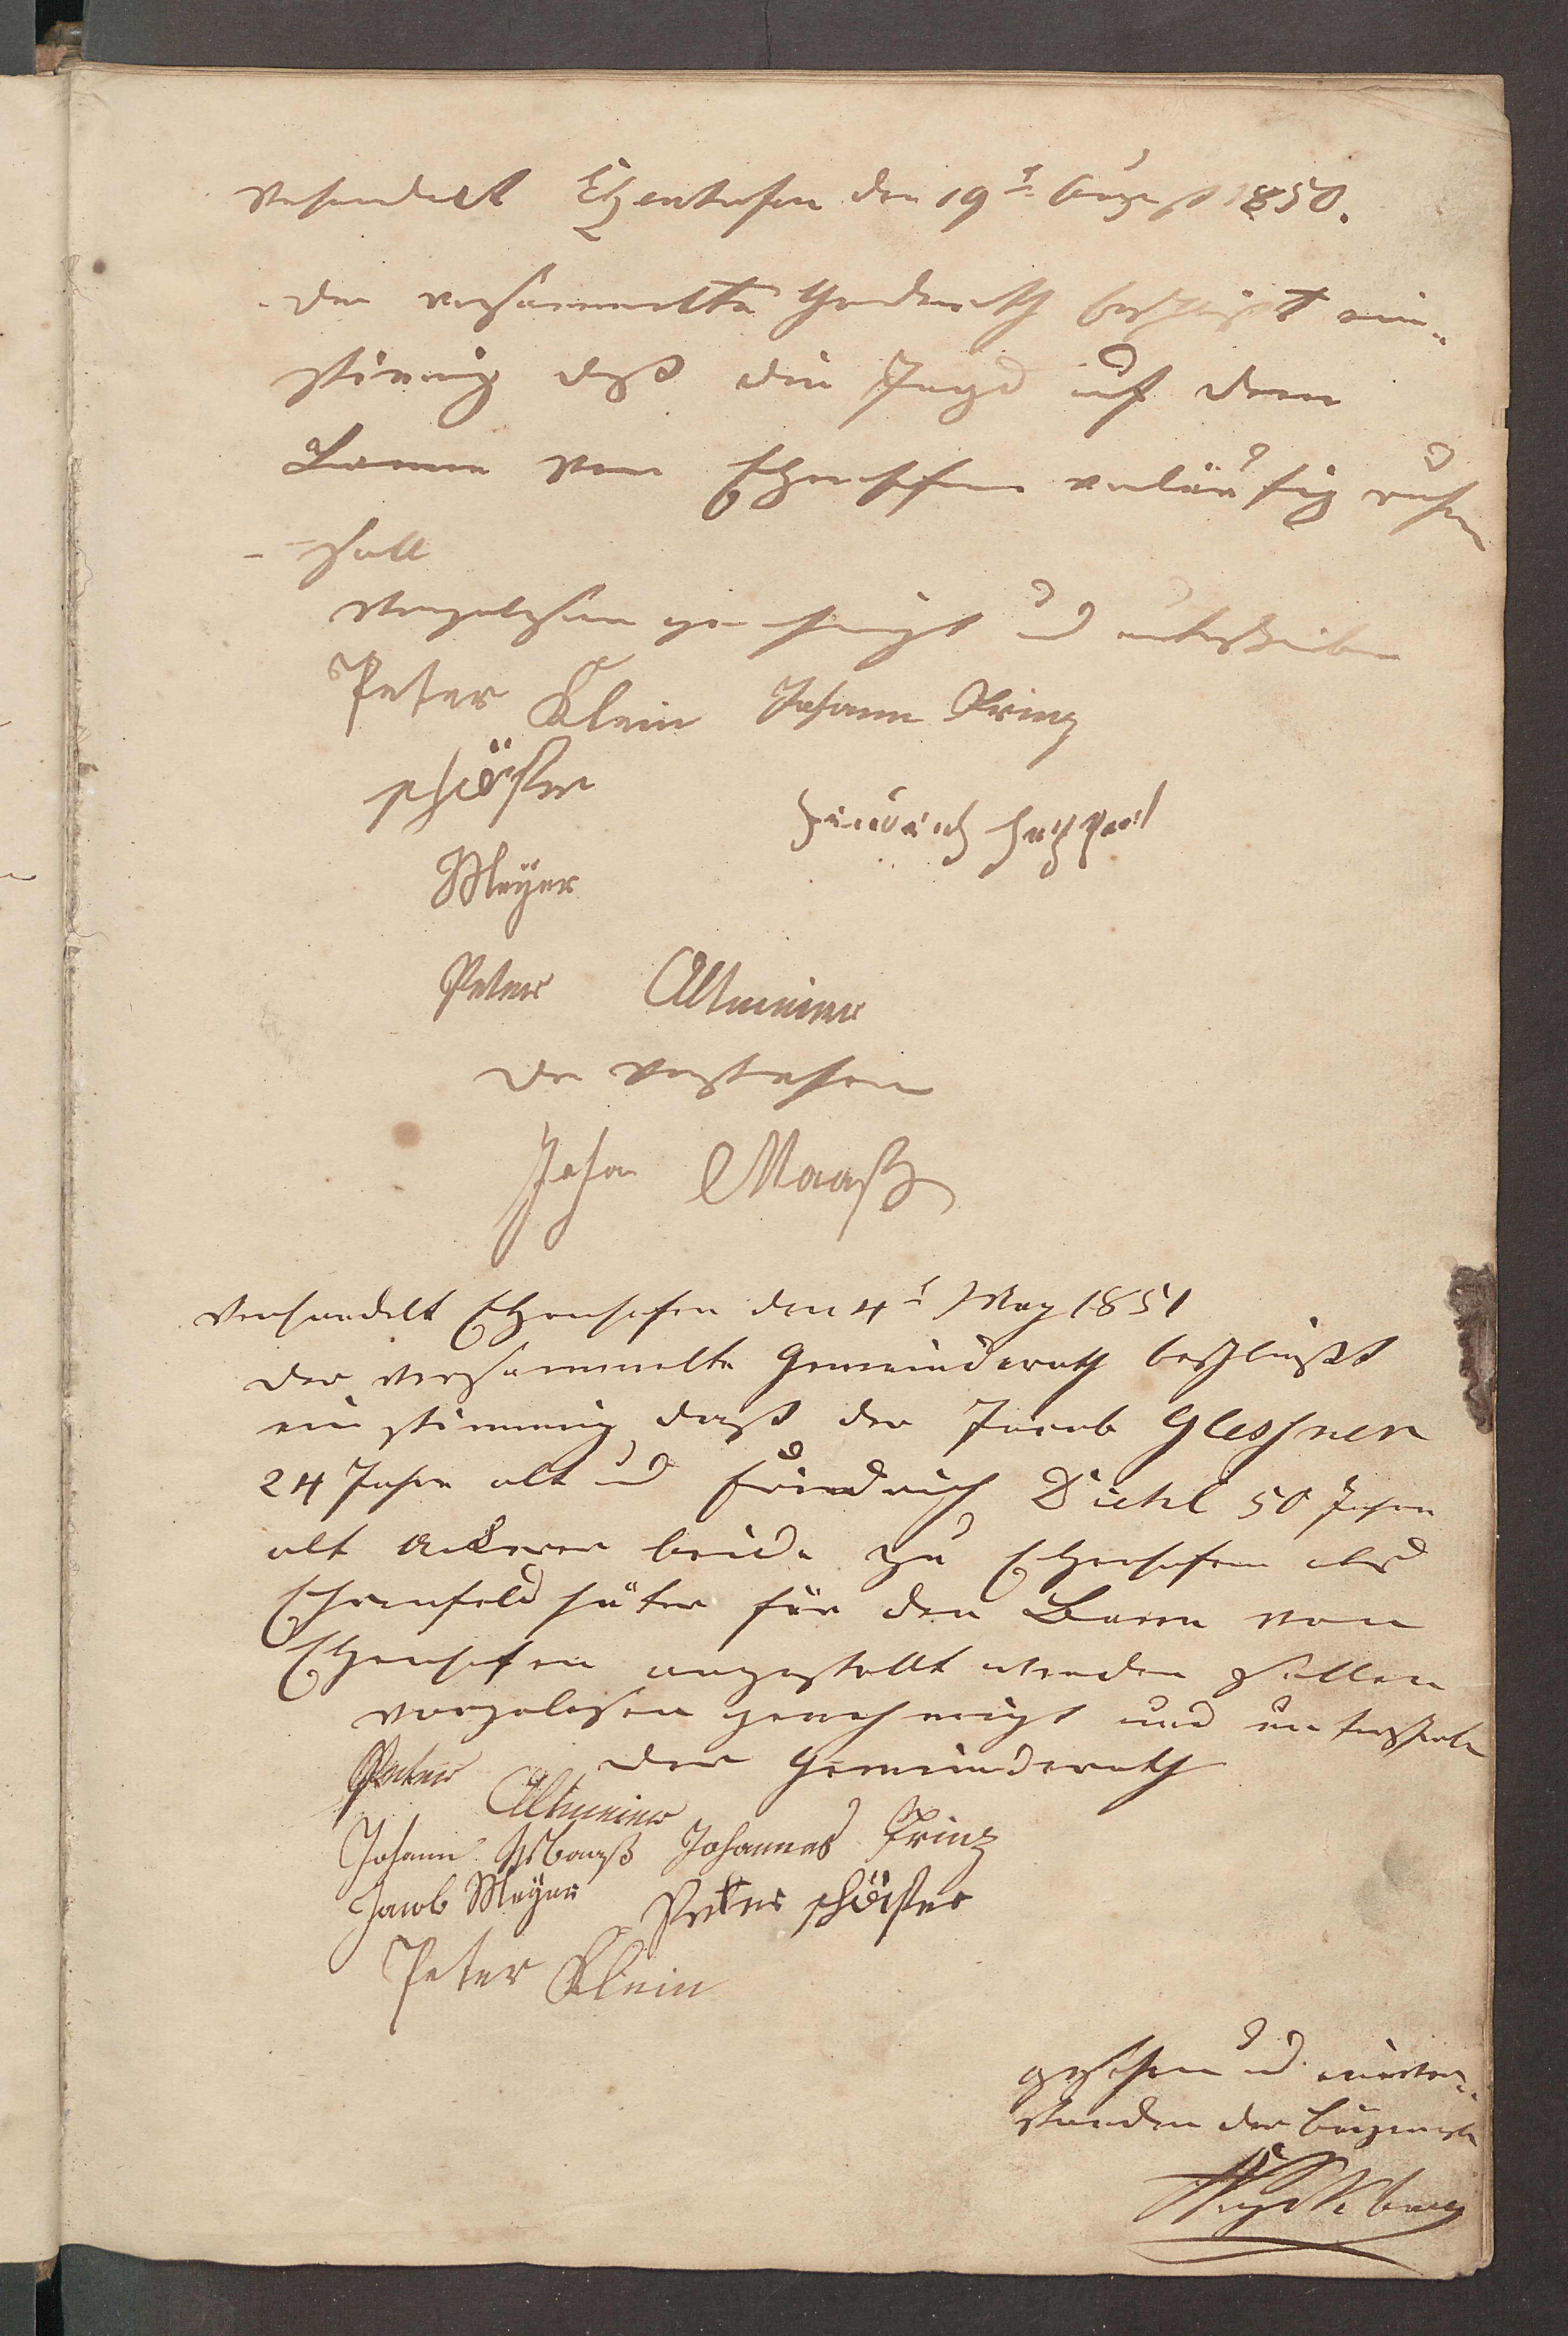 Verhandelt Etzenhofen den 19t August 1850.
der versammelte Gemeinderath beschließt ein-
stimmig daß die Jagd auf dem
Banne von Etzenhofen vorläufig ruhen
soll
vorgelesen genehmigt und unterschrieben
Peter Klein Johann Prinz
schäfer
Meÿer
Peter Altmeier
der Vorsteher
Joha Maaß
Verhandelt Etzenhofen den 4t May 1851
der versammelte Gemeinderath beschließt
ein stimmig daß der Jacob Glessner
24 Jahre alt und Friedrich Diehl 50 Jahre
alt Ackerer beide zu Etzenhofen als
Ehrenfeldhüter für den Bann von
Etzenhofen angestellt werden sollen
vorgelesen genehmigt und unterschrieben
der Gemeinderath
Peter Altmeier
Johann Maaß Johannes Prinz
Jacob Meÿer Peter schäfer
Peter Klein
gesehen und einver-
standen der Bürgermstr